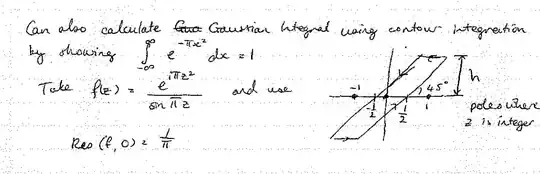 Can also calculate Gaussian Integral using contour integration
by showing ∫_{-∞}^{∞} e^{-πx²} dx = 1
Take f(z) = e^{iπz²} / sin πz and use
Res (f, 0) = 1/π
h
45°
-1 -1/2 1/2 1
poles where
z is integer